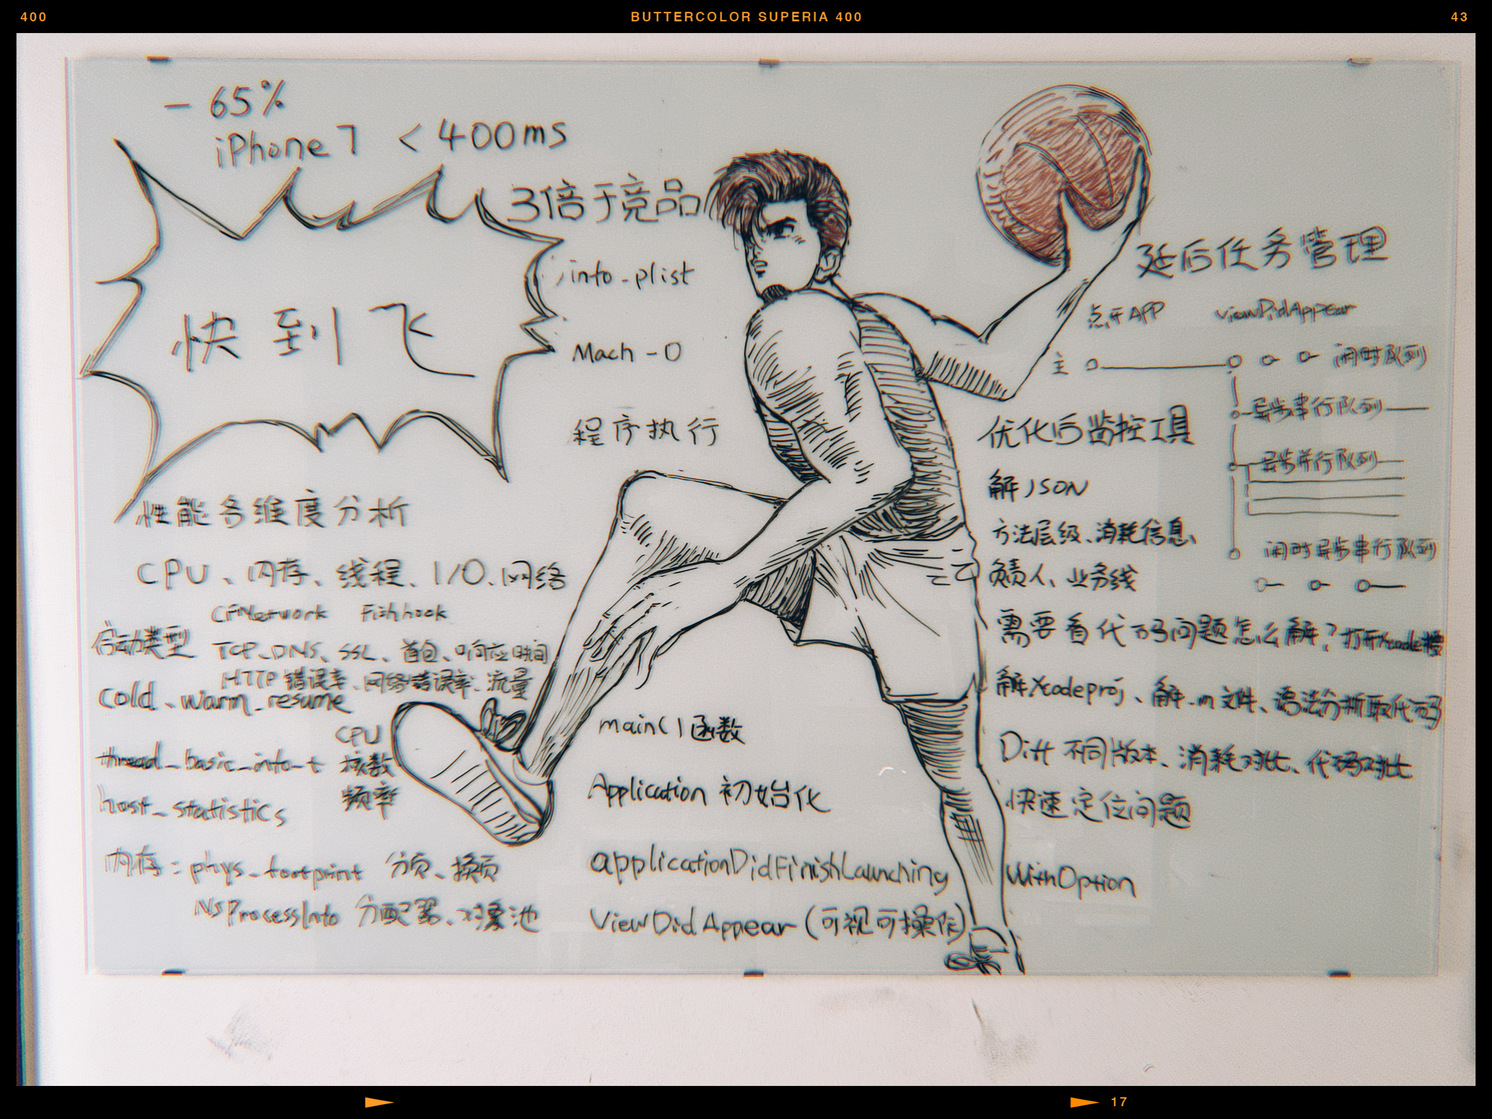 400
BUTTERCOLOR SUPERIA 400
43
- 65%
iPhone 7 < 400ms
3倍于竞品
快到飞
info_plist
Mach-O
程序执行
性能多维度分析
CPU、内存、线程、I/O、网络
CFNetwork Fishhook
启动类型
TCP、DNS、SSL、首包、响应时间
HTTP错误率、网络错误率、流量
cold、warm、resume
CPU
核数
频率
thread_basic_info_t
host_statistics
内存:phys_footprint 分页、换页
NSProcessInfo 分配器、对象池
main()函数
Application 初始化
applicationDidFinishLaunching WithOption
ViewDidAppear(可视可操作)
延后任务管理
点开APP viewDidAppear
主
闲时队列
异步串行队列
异步并行队列
闲时异步串行队列
优化后监控工具
解JSON
方法层级、消耗信息、
负责人、业务线
需要看代码问题怎么解?打开Xcode搜
解Xcodeproj、解.m文件、语法分析取代码
Diff 不同版本、消耗对比、代码对比
快速定位问题
17